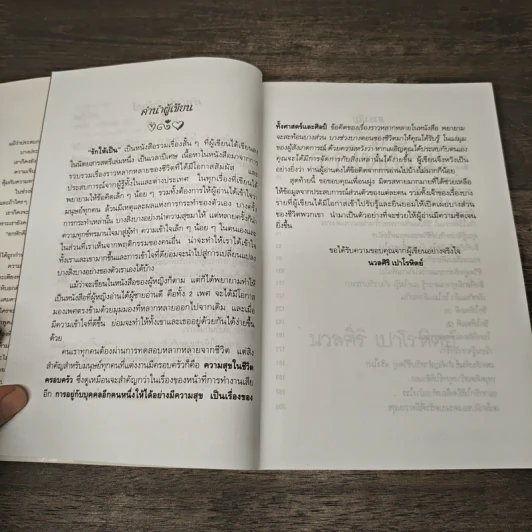 คำนำผู้เขียน
"รักให้เป็น" เป็นหนังสือรวมเรื่องสั้น ๆ ที่ผู้เขียนได้เขียนลง
ในนิตยสารสตรีเล่มหนึ่ง เป็นเวลาปีเศษ เนื้อหาในหนังสือมาจากการ
รวบรวมเรื่องราวหลากหลายของชีวิตที่ได้มีโอกาสสัมผัส และ
ประสบการณ์จากผู้รู้ทั้งในและต่างประเทศ ในทุกเรื่องที่เขียนได้
พยายามให้ข้อคิดเล็ก ๆ น้อย ๆ รวมทั้งต้องการให้ผู้อ่านได้เข้าใจว่า
มนุษย์ทุกคน ล้วนมีเหตุและผลแห่งการกระทำของตัวเอง บางครั้ง
การกระทำเหล่านั้น บางสิ่งบางอย่างนำความสุขมาให้ แต่หลายครั้งก็นำ
ความทุกข์ทรมานใจมาสู่ผู้ทำ ความเข้าใจเล็ก ๆ น้อย ๆ ในตนเองและ
ในส่วนที่เราเห็นจากพฤติกรรมของคนอื่น น่าจะทำให้เราได้เข้าใจ
ทั้งเราและเขามากขึ้นและการเข้าใจที่ดีย่อมจะนำไปสู่การเปลี่ยนแปลง
บางสิ่งบางอย่างของตัวเราเองได้บ้าง
แม้ว่าจะเขียนในหนังสือของผู้หญิงก็ตาม แต่ก็ได้พยายามทำให้
เป็นหนังสือที่ผู้หญิงอ่านได้ผู้ชายอ่านดี คือทั้ง 2 เพศ จะได้มีโอกาส
มองเพศตรงข้ามด้วยมุมมองที่หลากหลายออกไปจากเดิม และเมื่อ
มีความเข้าใจที่ดีขึ้น ย่อมจะทำให้ทั้งเราและเธออยู่ด้วยกันได้ง่ายขึ้น
ด้วย
คนเราทุกคนต้องผ่านการทดสอบหลากหลายจากชีวิต แต่สิ่ง
สำคัญสำหรับมนุษย์ทุกคนที่แต่งงานมีครอบครัวก็คือ ความสุขในชีวิต
ครอบครัว ซึ่งดูเหมือนจะสำคัญกว่าในเรื่องของหน้าที่การทำงานเสีย
อีก การอยู่กับบุคคลอีกคนหนึ่งให้ได้อย่างมีความสุข เป็นเรื่องของ
ทั้งศาสตร์และศิลป์ ข้อคิดของเรื่องราวหลากหลายในหนังสือ พยายาม
จะสะท้อนบางส่วน บางช่วงบางตอนของชีวิตมาให้คุณได้รับรู้ ในแง่มุม
ของผู้สังเกตการณ์ ด้วยความหวังว่า หากเผอิญคุณได้ประสบกับตนเอง
คุณจะได้มีการจัดการกับสิ่งเหล่านั้นได้ง่ายขึ้น ผู้เขียนจึงหวังเป็น
อย่างยิ่งว่า ท่านผู้อ่านคงได้ข้อคิดจากการอ่านไปบ้างไม่มากก็น้อย
สุดท้ายนี้ ขอขอบคุณเพื่อนฝูง มิตรสหายมากมายที่ได้ช่วยเหลือ
ให้ข้อมูลจากประสบการณ์ส่วนตัวของแต่ละคน รวมทั้งเจ้าของเรื่องบาง
รายที่ผู้เขียนได้มีโอกาสเข้าไปรับรู้และยินยอมให้เปิดเผยบางส่วน
ของชีวิตพวกเขา นำมาเป็นตัวอย่างที่จะช่วยให้ผู้อ่านมีความชัดเจน
ยิ่งขึ้น
ขอได้รับความขอบคุณจากผู้เขียนอย่างจริงใจ
นวลศิริ เปาโรหิตย์